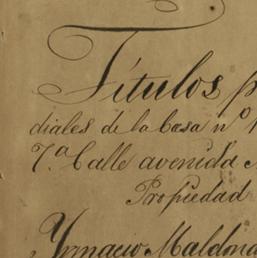 Títulos
diales de la Casa nº
7.ª Calle avenida
Propiedad
Ygnacio Maldona